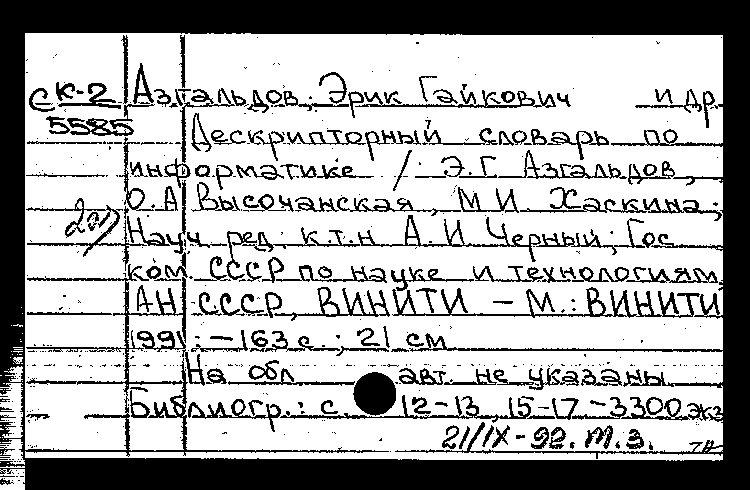 СК-2 Азгальдов, Эрик Гайкович и др.
5585 Дескрипторный словарь по
информатике / Э.Г. Азгальдов,
О.А. Высочанская, М.И. Хаскина;
Науч. ред. к.т.н. А.И. Черный; Гос.
ком. СССР по науке и технологиям,
АН СССР, ВИНИТИ – М.: ВИНИТИ
1991. – 163 с.; 21 см
На обл. авт. не указаны
Библиогр.: с. 12-13, 15-17 – 3300 экз
21/IX-92. т.з.